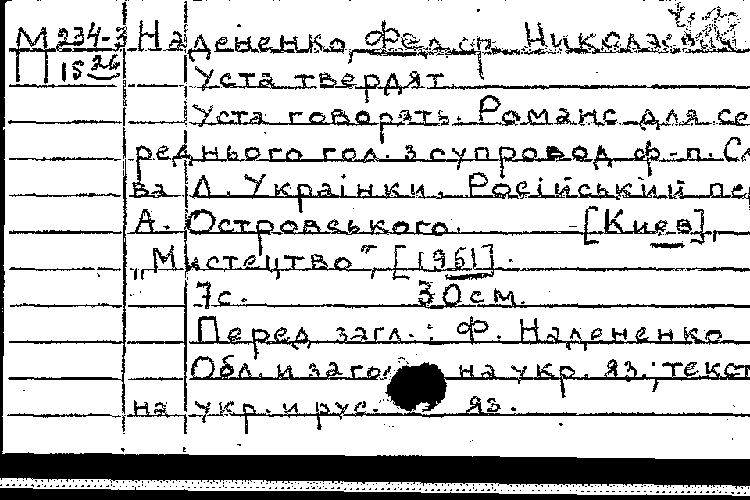 М 234-3 Надененко, Федор Николаевич
15 26 Уста твердят
Уста говорять. Романс для се
реднього гол. з супровод ф-п. Сл
ва Л. Украінки. Російський пер
А. Островського. [Киев],
„Мистецтво", [1961].
7с. 30см.
Перед загл.: Ф. Надененко
Обл. и заго на укр. яз.; текст
на укр. и рус. яз.